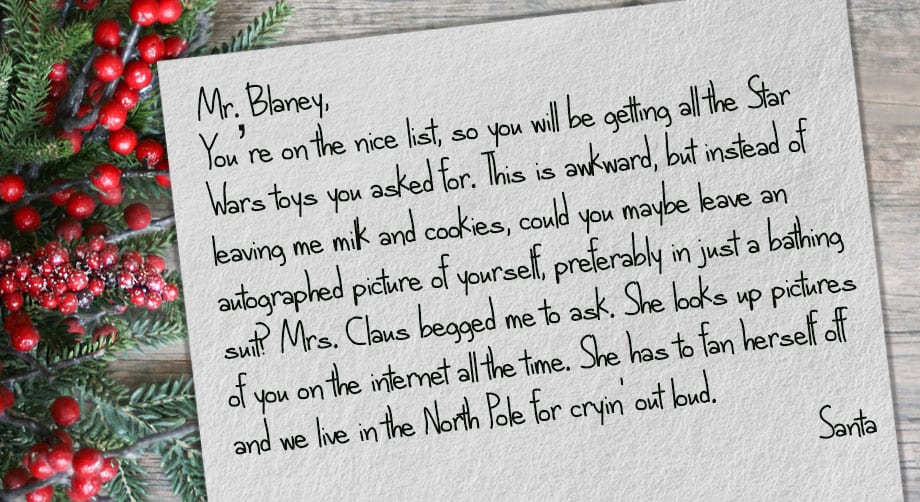 Mr. Blaney,
You're on the nice list, so you will be getting all the Star
Wars toys you asked for. This is awkward, but instead of
leaving me milk and cookies, could you maybe leave an
autographed picture of yourself, preferably in just a bathing
suit? Mrs. Claus begged me to ask. She looks up pictures
of you on the internet all the time. She has to fan herself off
and we live in the North Pole for cryin' out loud.
Santa